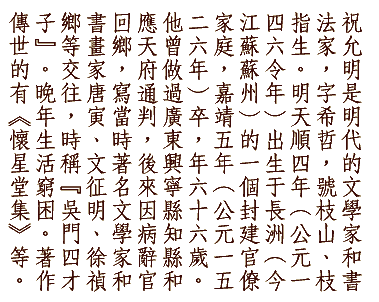 祝允明是明代的文學家和書
法家，字希哲，號枝山、枝
指生。明天順四年（公元一
四六令年）出生于長洲（今
江蘇蘇州）的一個封建官僚
家庭，嘉靖五年（公元一五
二六年）卒，年六十六歲。
他曾做過廣東興寧縣知縣和
應天府通判，後來因病辭官
回鄉，寫當時著名文學家和
書畫家唐寅、文征明、徐禎
鄉等交往，時稱『吳門四才
子』。晚年生活窮困。著作
傳世的有《懷星堂集》等。